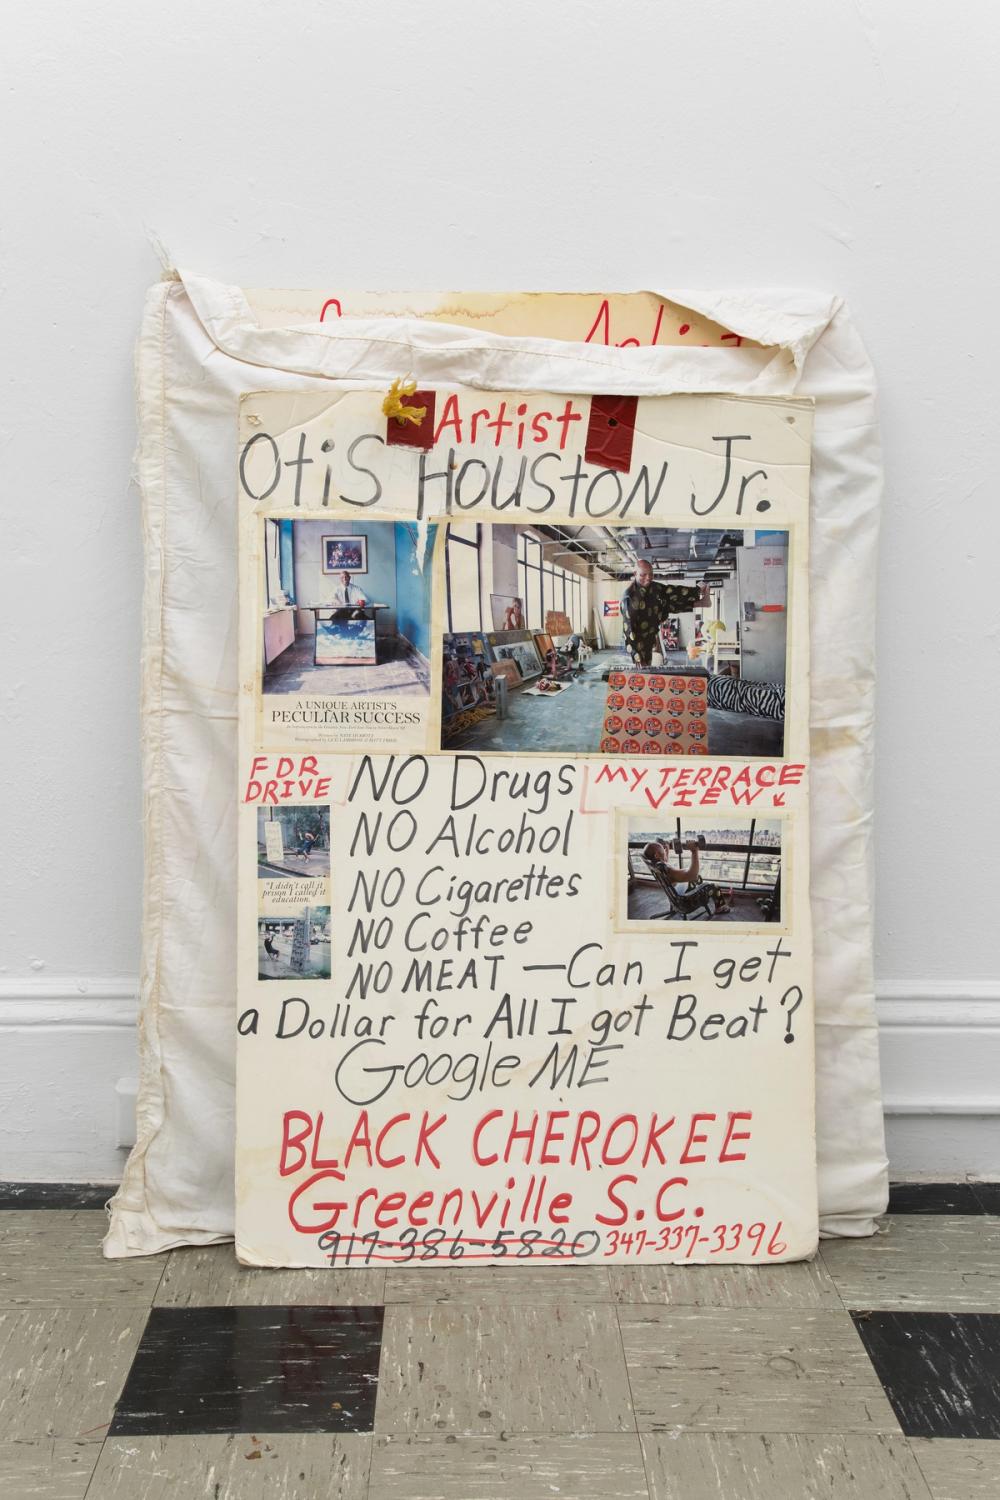 Artist
Artist
Otis HOUSTON Jr.
A UNIQUE ARTIST'S
PECULIAR SUCCESS
FDR
DRIVE
NO Drugs
NO Alcohol
NO Cigarettes
NO Coffee
NO MEAT — Can I get
a Dollar for All I got Beat?
MY TERRACE
VIEW
"I didn't call it
prison I called it
education."
Google ME
BLACK CHEROKEE
Greenville S.C.
917-386-5820 347-337-3396